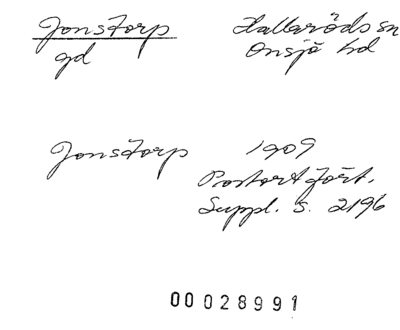 Jonstorp
Hallaröds sn
gd
Onsjö hd
Jonstorp
1909
Postortfört.
Suppl. s. 2196
00028991